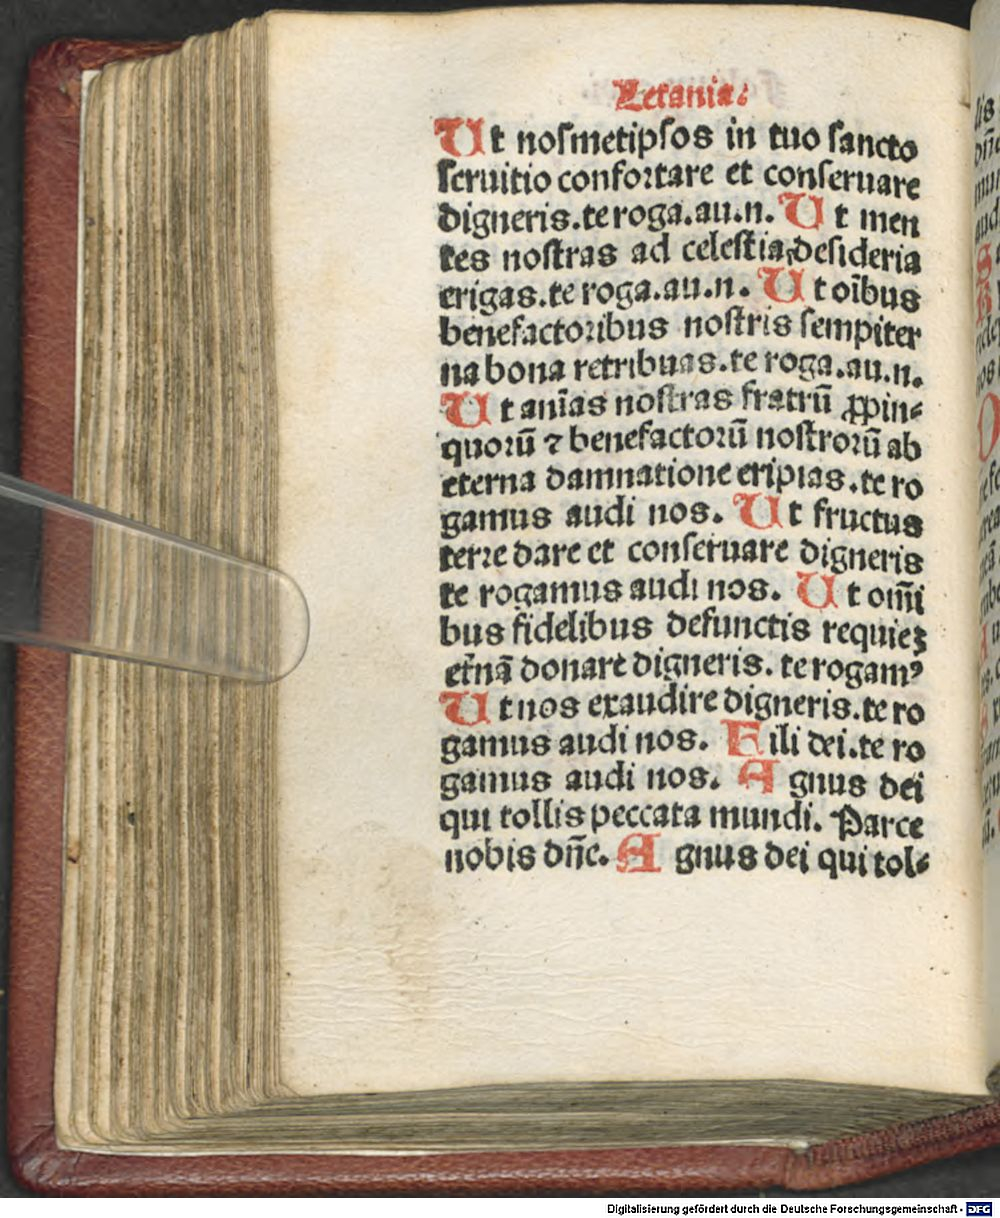 Letania.
Ut noſmetipſos in tuo ſancto
ſeruitio confoꝛtare et conſeruare
digneris.te roga.au.n. Ut men
tes noſtras ad celeſtia deſideria
erigas.te roga.au.n. Ut oībus
benefactoꝛibus noſtris ſempiter
na bona retribuas.te roga.au.n.
Ut aniās noſtras fratrū ꝓpin⸗
quoꝛū ⁊ benefactoꝛū noſtroꝛū ab
eterna damnatione eripias.te ro
gamus audi nos. Ut fructus
terre dare et conſeruare digneris
te rogamus audi nos. Ut om̄i
bus fidelibus defunctis requieꝫ
et̄nā donare digneris. te rogamꝰ
Ut nos exaudire digneris.te ro
gamus audi nos. Fili dei.te ro
gamus audi nos. Agnus dei
qui tollis peccata mundi. Parce
nobis dn̄e. Agnus dei qui tol⸗
Digitalisierung gefördert durch die Deutsche Forschungsgemeinschaft - DFG